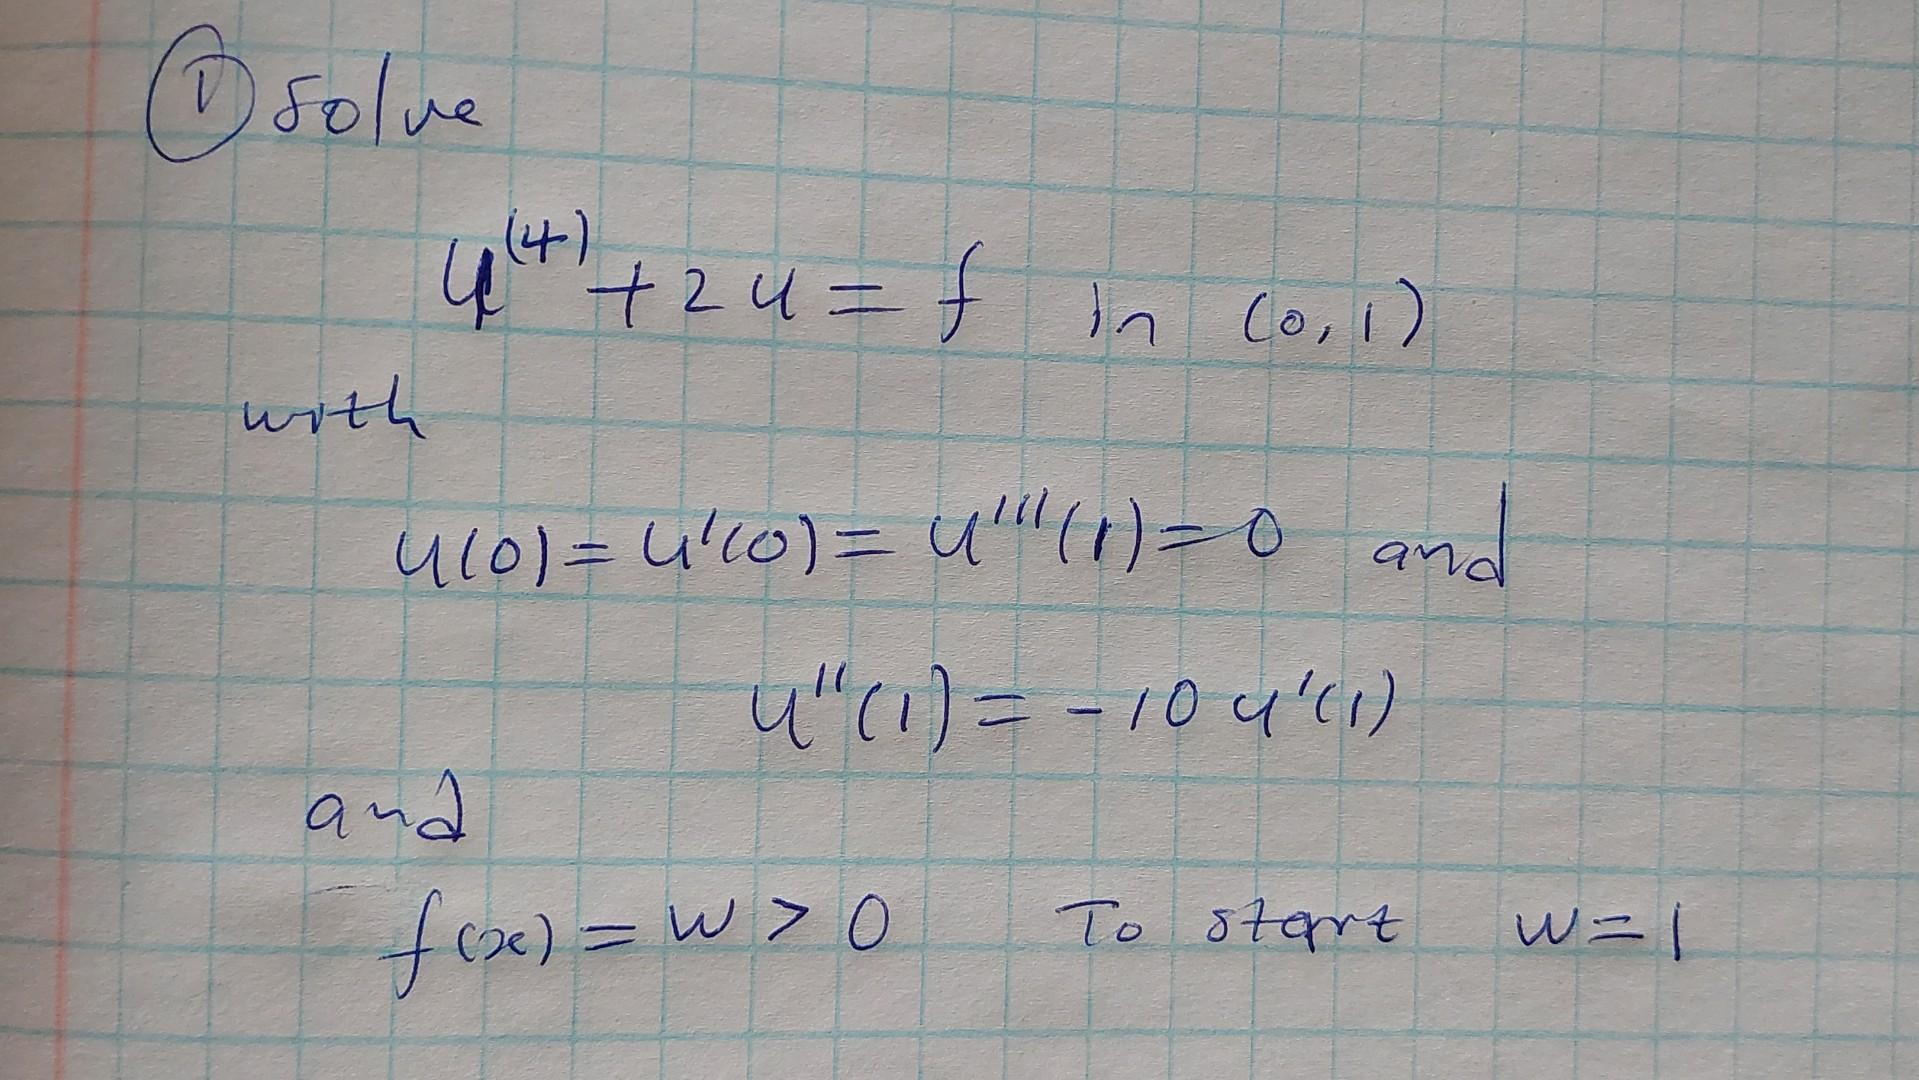 ① Solve
u⁽⁴⁾ + 2u = f in (0,1)
with
u(0) = u'(0) = u'''(1) = 0 and
u''(1) = -10 u'(1)
and
f(x) = w > 0 To start w = 1